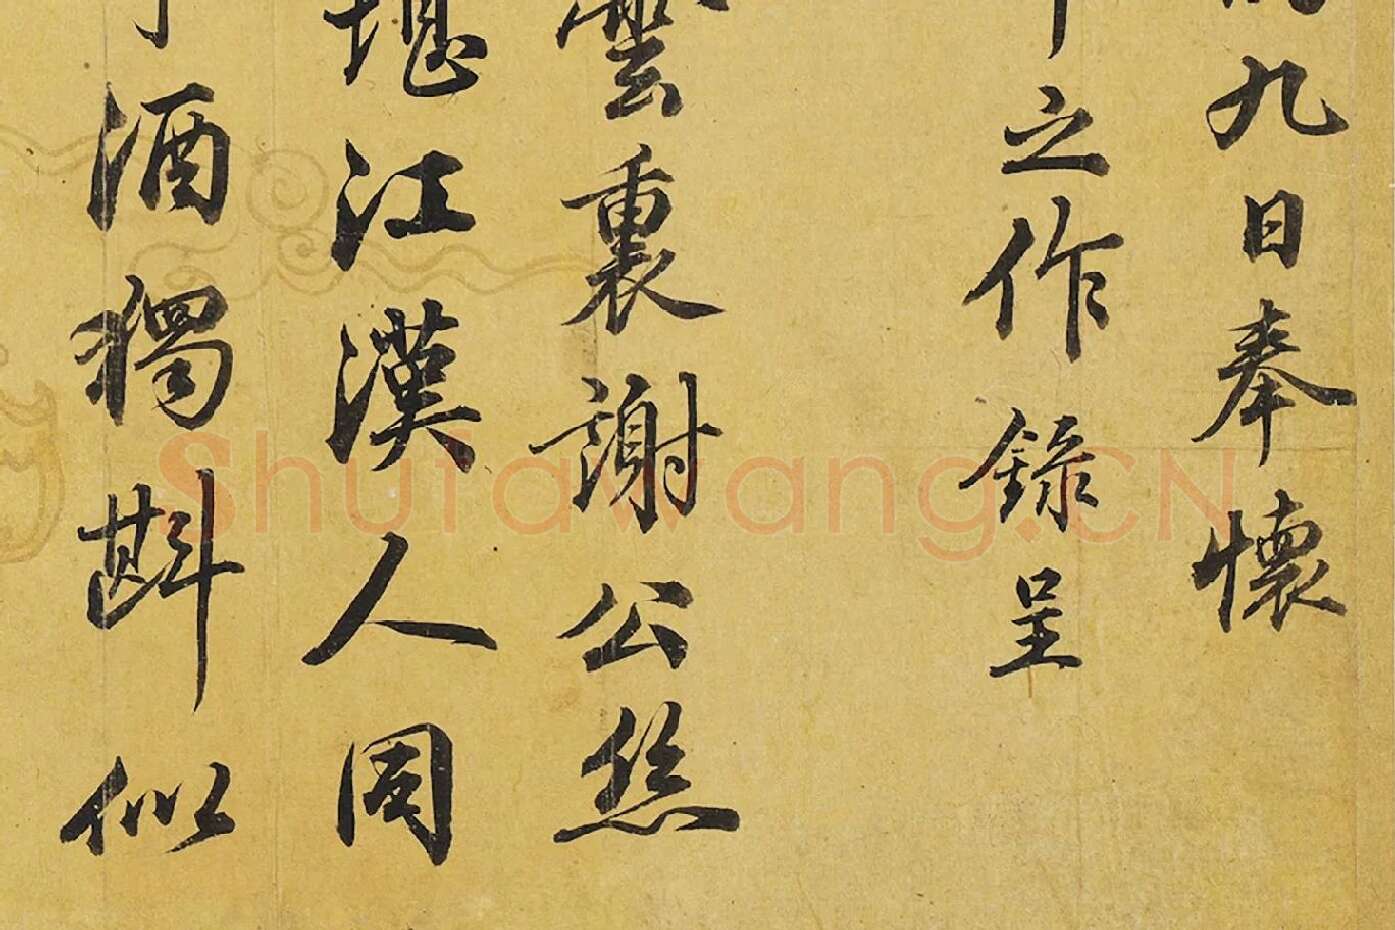 九日奉懷
之作錄呈
雲裏謝公
堪江漢人
酒獨斟似
Shufawang.CN